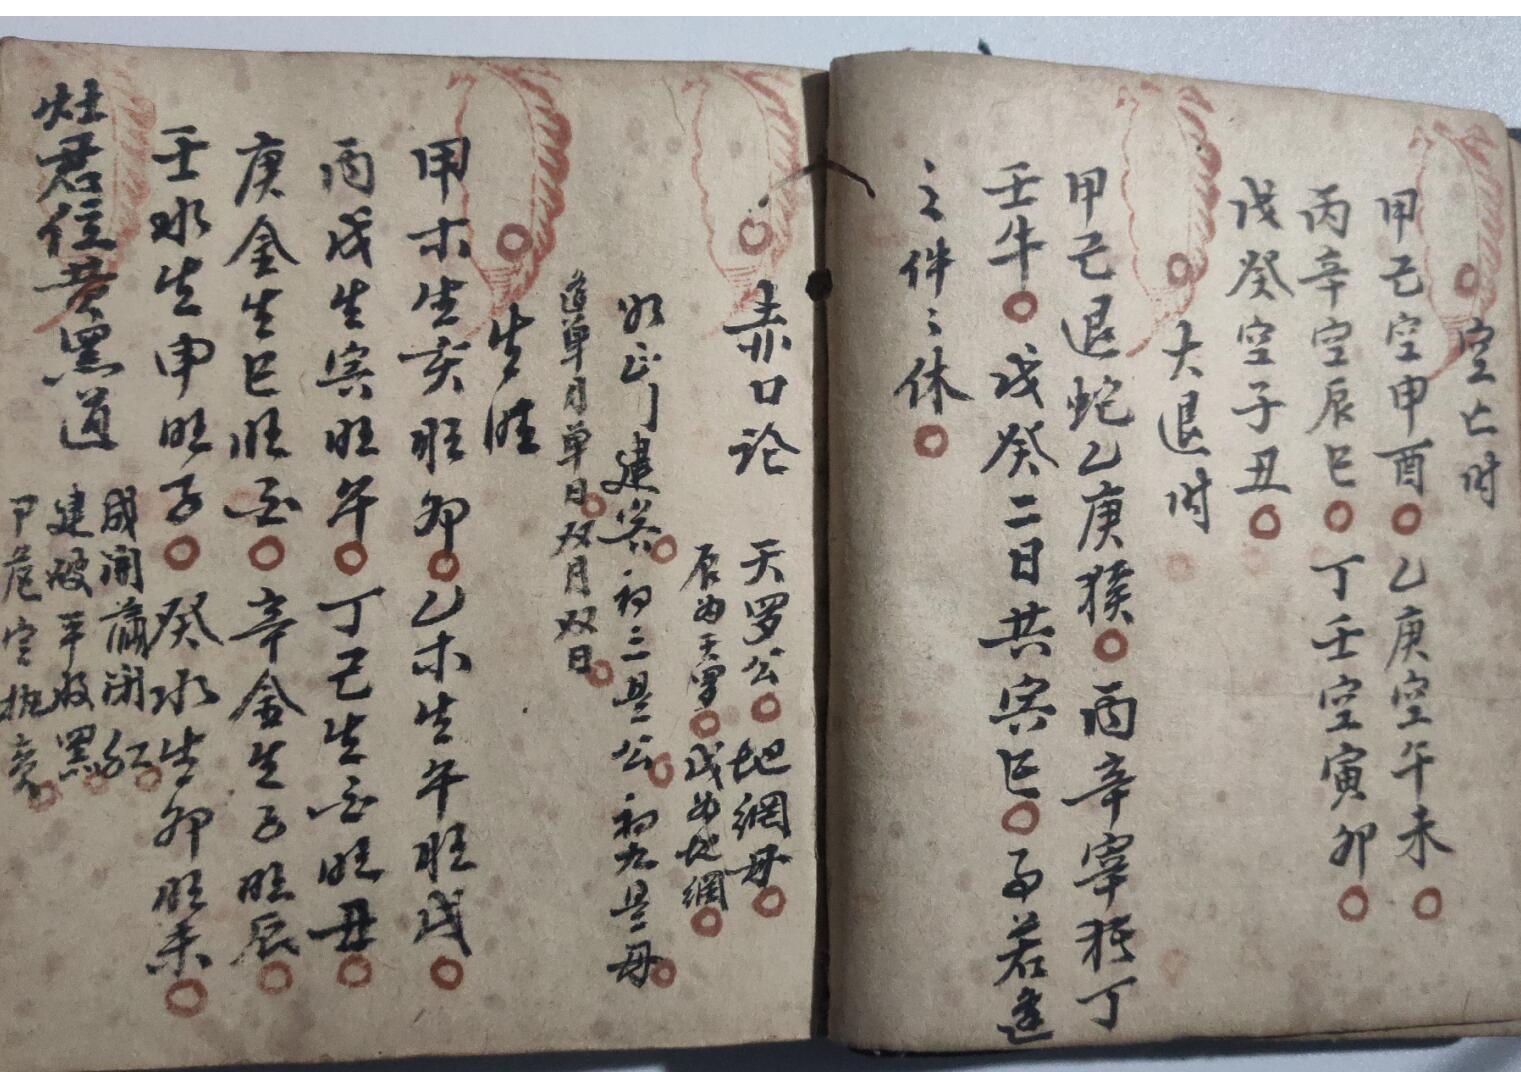 空亡时
甲己空申酉 乙庚空午未
丙辛空辰巳 丁壬空寅卯
戊癸空子丑
大退时
甲己退蛇乙庚猴 丙辛宰猪丁
壬牛 戊癸二日共寅巳 若逢
之件々休
赤口论
天罗公 地網母
辰为天罗 戌为地網
建寅 初二是公 初九是母
单月单日 双月双日
生旺
甲木生亥旺卯 乙木生午旺戌
丙戊生寅旺午 丁己生酉旺丑
庚金生巳旺酉 辛金生子旺辰
壬水生申旺子 癸水生卯旺未
灶君位黄黑道
成開满闭红
建破平收黑
危定执